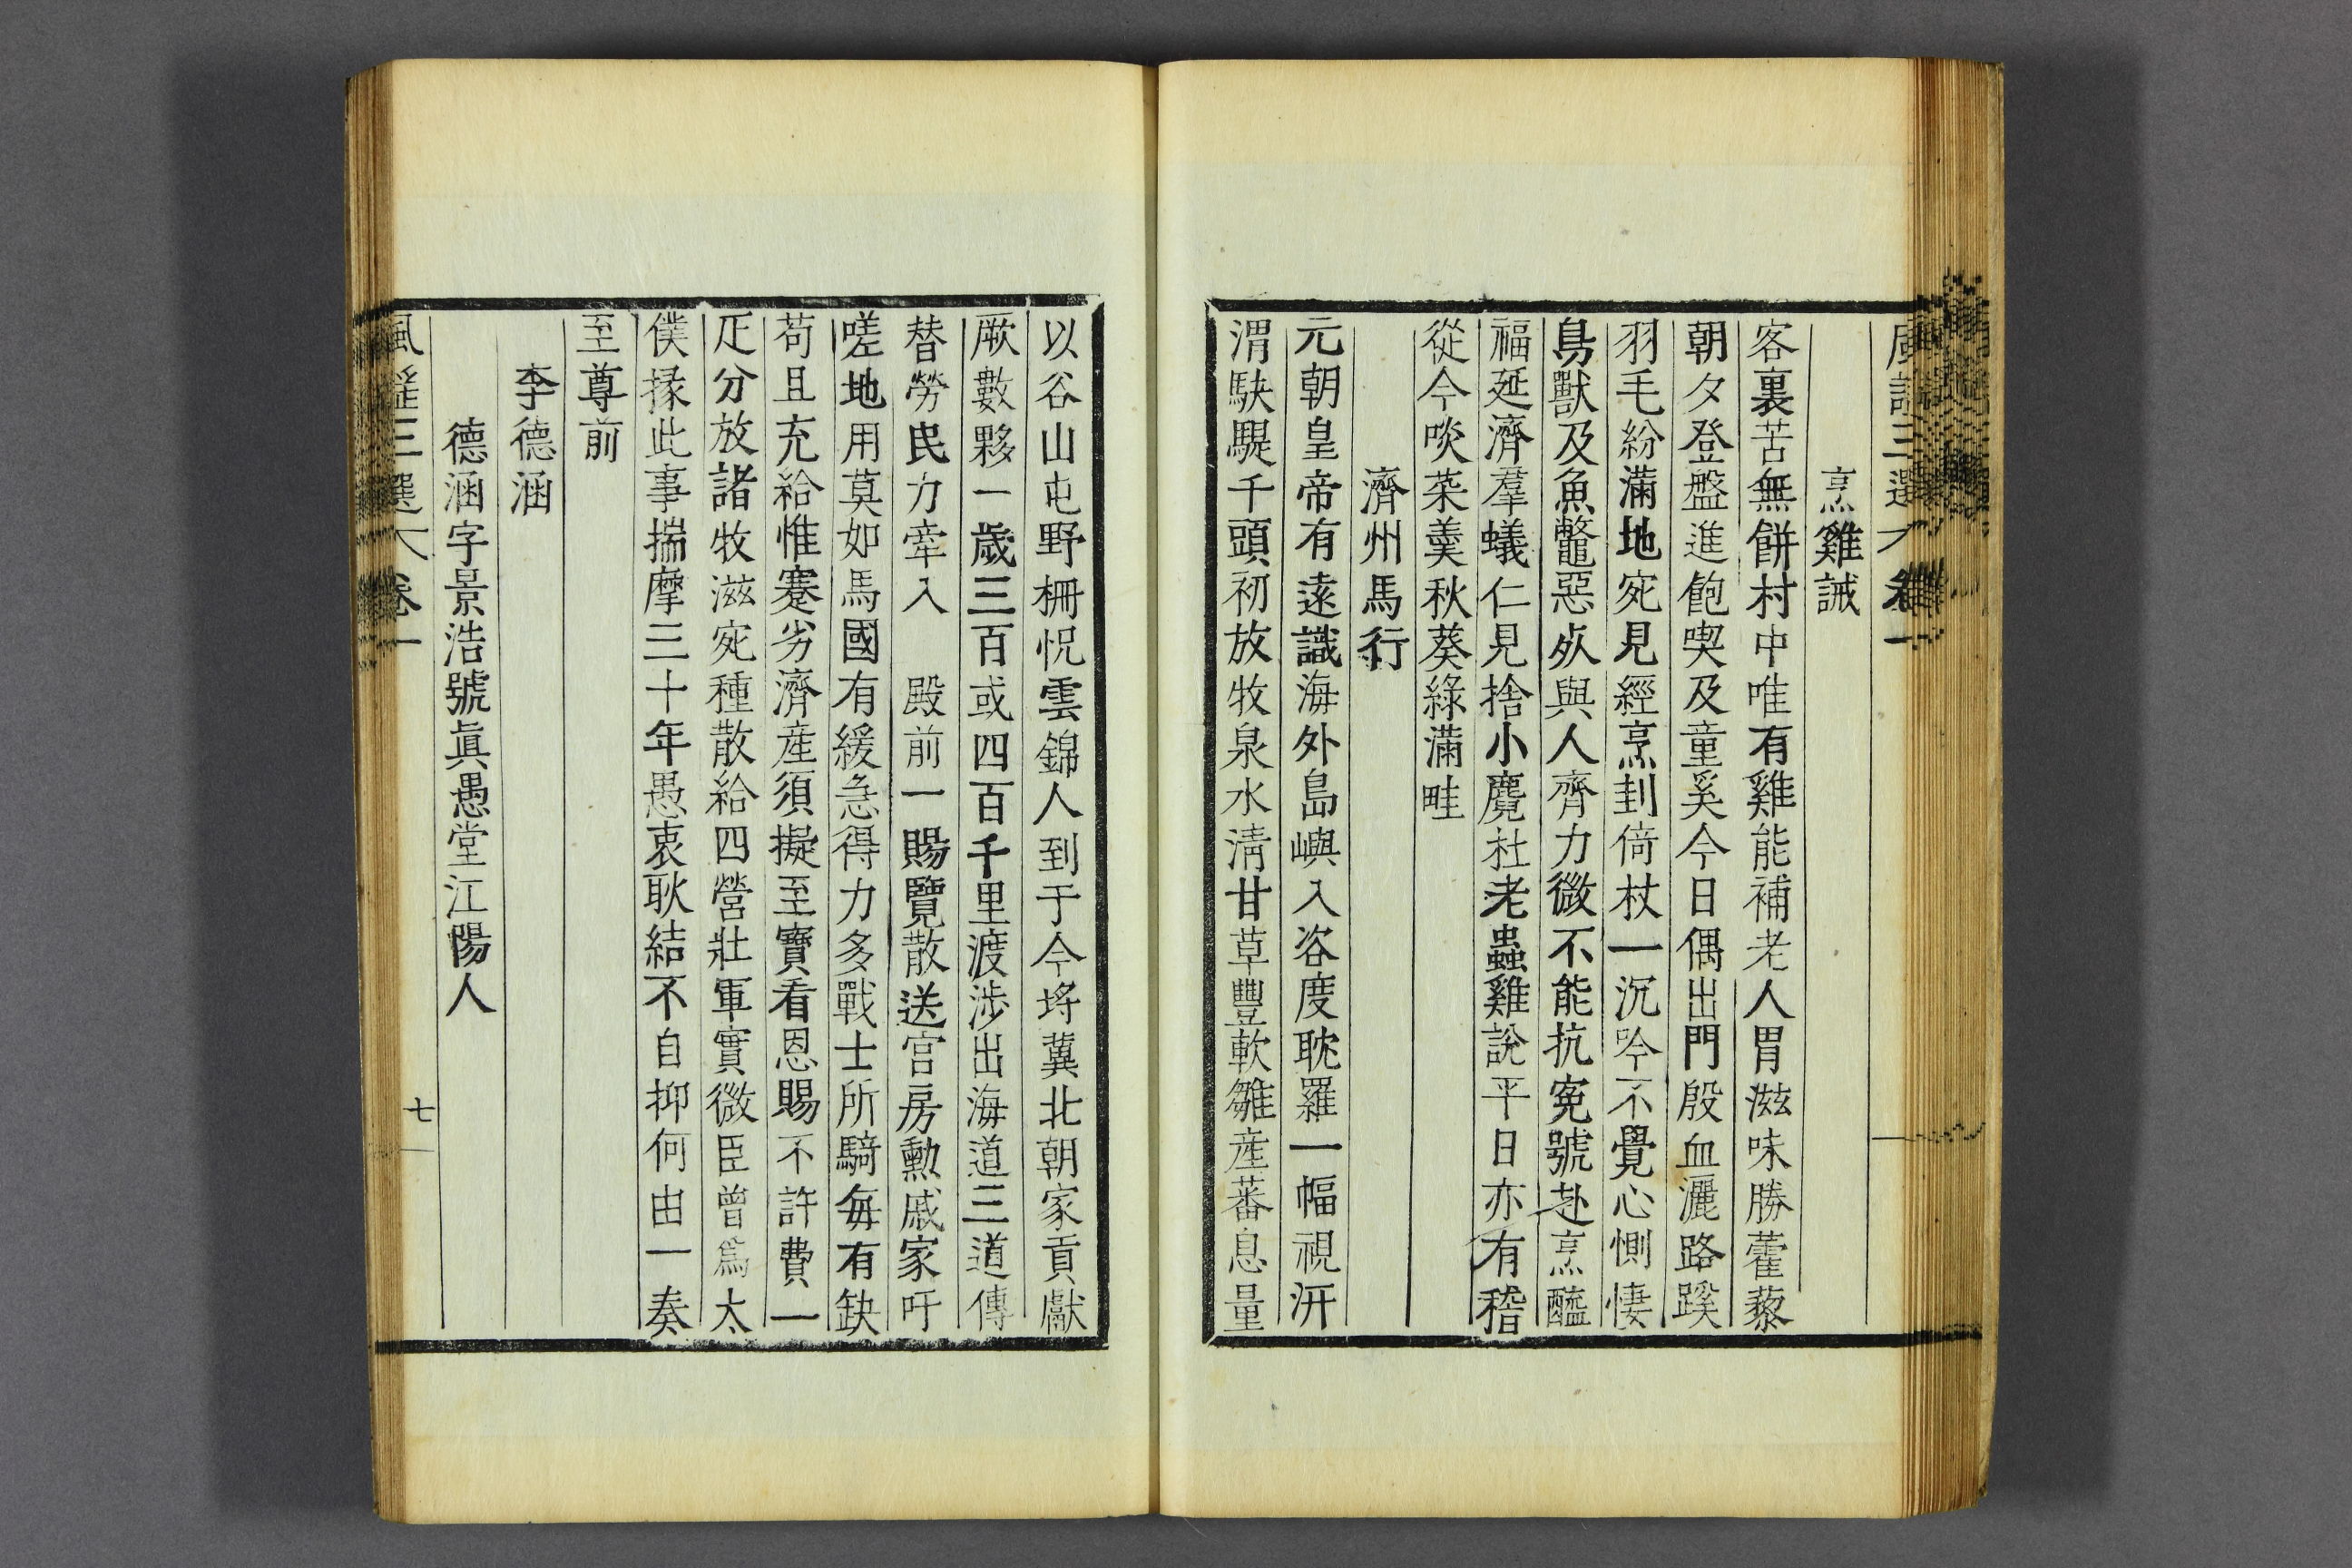 風謠三選 卷一
烹雞誡
客裏苦無餠村中唯有雞能補老人胃滋味勝藿藜
朝夕登盤進飽喫及童奚今日偶出門殷血灑路蹊
羽毛紛滿地宛見經烹刲倚杖一沉吟不覺心惻悽
鳥獸及魚鼈惡死與人齊力微不能抗寃號赴烹醢
福延濟羣蟻仁見捨小麑杜老蟲雞說平日亦有稽
從今啖菜羹秋葵綠滿畦
濟州馬行
元朝皇帝有遠識海外島嶼入咨度耽羅一幅視汧
渭駃騠千頭初放牧泉水淸甘草豐軟雛産蕃息量
以谷山屯野柵怳雲錦人到于今埒冀北朝家貢獻
厥數夥一歲三百或四百千里渡涉出海道三道傳
替勞民力牽入 殿前一賜覽散送宮房勳戚家吁
嗟地用莫如馬國有緩急得力多戰士所騎每有缺
苟且充給惟蹇劣濟産須擬至寶看恩賜不許費一
疋分放諸牧滋宛種散給四營壯軍實微臣曾爲太
僕掾此事揣摩三十年愚衷耿結不自抑何由一奏
至尊前
李德涵
德涵字景浩號眞愚堂江陽人
風謠三選 卷一
七